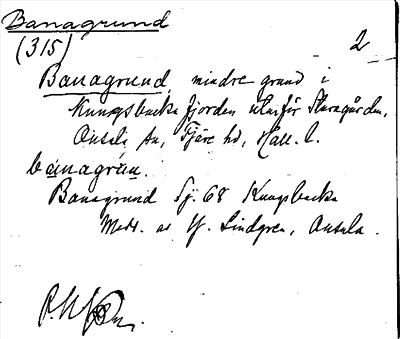 Banagrund
(315)
2
Banagrund, mindre grund i
Kungsbacka fjorden utanför Sturegården,
Onsala sn, Fjäre hd, Hall. l.
bánagrùn.
Banagrund Sj. 68 Kungsbacka
Medd. av Hj. Lindgren, Onsala.